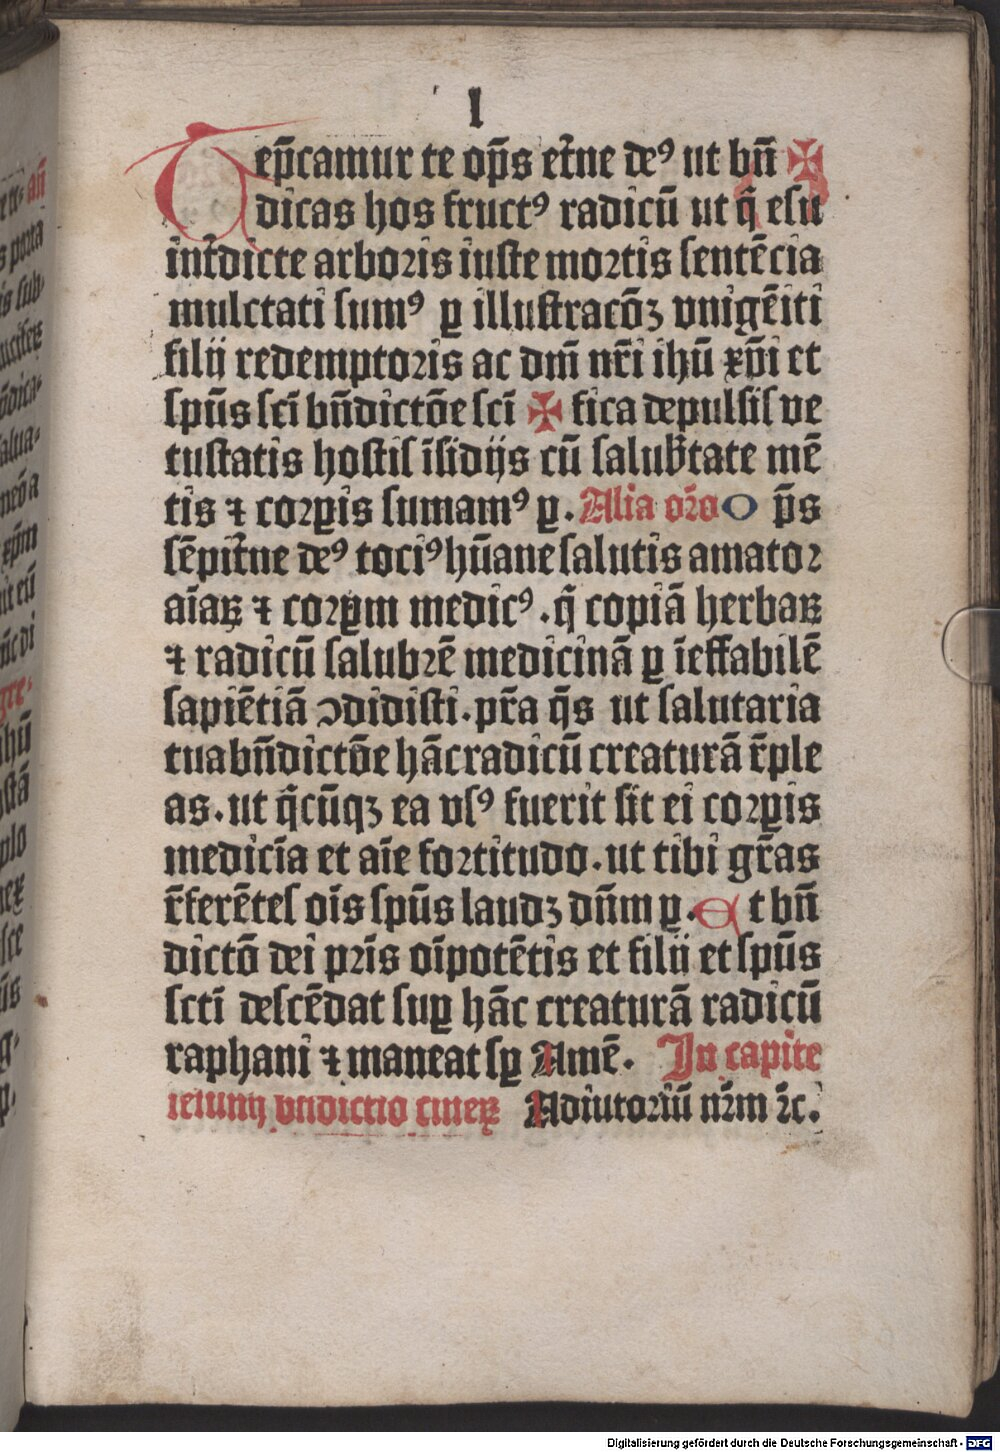 I
Tep̄camur te op̄s et̄ne deꝰ ut bn̄ ✠
dicas hos fructꝰ radicū ut q̄ esu
int̄dicte arboris iuste mortis sentēcia
mulctati sumꝰ ꝑ illustracōꝫ vnigēiti
filii redemptoris ac dn̄i nr̄i ihū xp̄i et
sp̄us sc̄i bn̄dictōe sc̄i ✠ fica depulsis ve
tustatis hostis īsidijs cū salub̄tate mē
tis ⁊ corꝑis sumamꝰ ꝑ. Alia or̄o O p̄s
sēpit̄ne deꝰ tociꝰ hūane salutis amator
aīaꝝ ⁊ corꝑm medicꝰ .q̄ copiā herbaꝝ
⁊ radicū salubrē medicinā ꝑ īeffabilē
sapiētiā ꝯdidisti. pr̄a q̄s ut salutaria
tua bn̄dictōe hāc radicū creaturā r̄ple
as. ut q̄cūqꝫ ea vsꝰ fuerit sit ei corꝑis
medicīa et aīe fortitudo. ut tibi gr̄as
r̄ferētes oīs sp̄us laudꝫ dn̄m ꝑ. Et bn̄
dictō dei pr̄is oīpotētis et filii et sp̄us
sctī descēdat suꝑ hāc creaturā radicū
raphani ⁊ maneat sꝑ Amē. In capite
ieiunij bn̄dictio cineꝝ Adiutoriū nr̄m ⁊c.
Digitalisierung gefördert durch die Deutsche Forschungsgemeinschaft - DFG